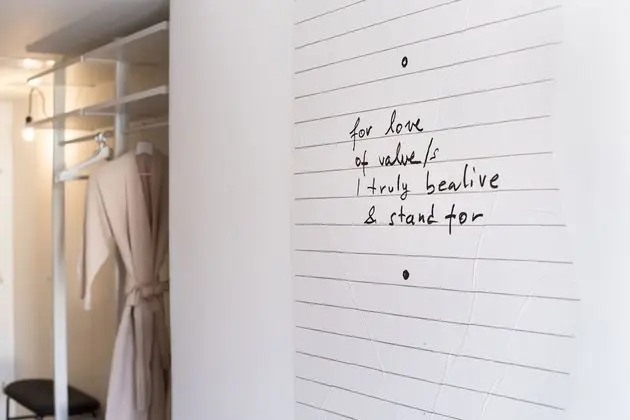 for love
of value/s
I truly bealive
& stand for